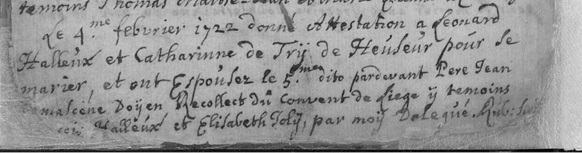 temoins Thomas
Le 4.me febvrier 1722 donné Attestation a Leonard
Halleux et Catharinne de Trij, de Heuseur pour se
marier et ont Espousez le 5.me dito pardevant Pere Jean
Damascene Doijen Recollect du Convent de Liege ij temoins
Halleux et Elisabeth Jolij, par moij